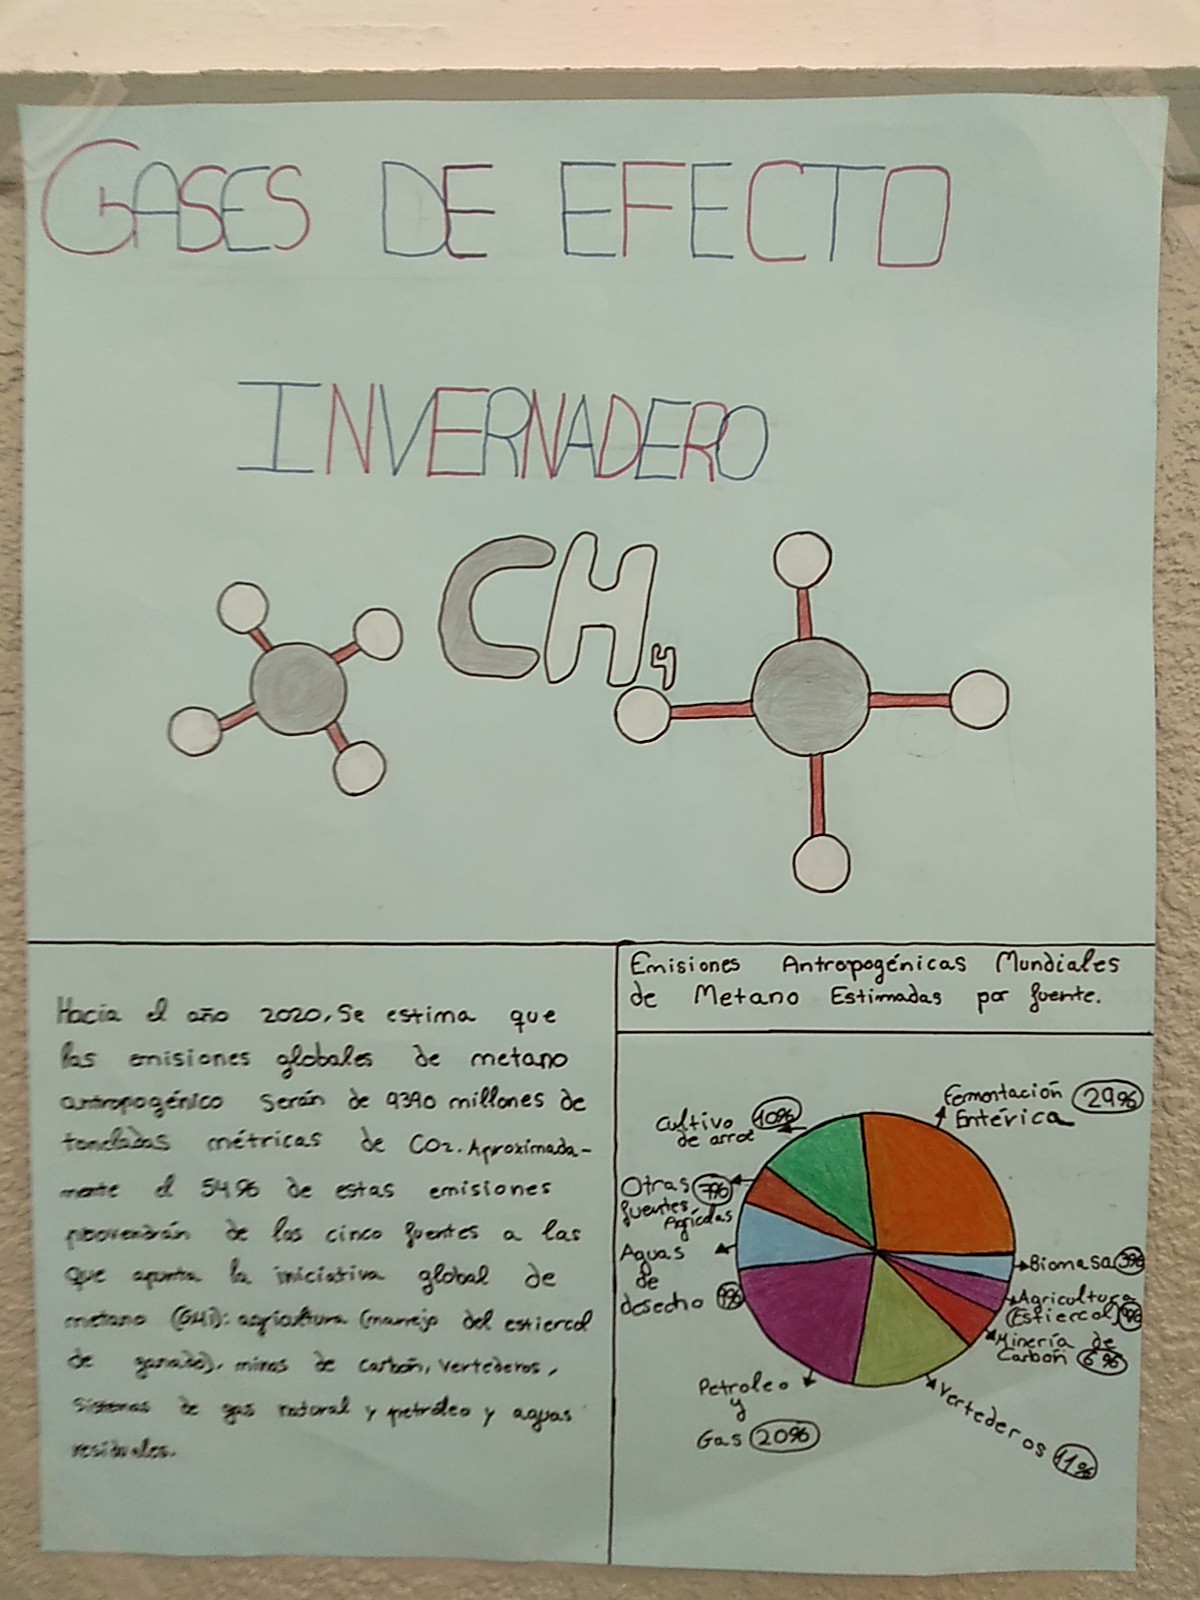 GASES DE EFECTO
INVERNADERO
CH4
Hacia el año 2020, Se estima que
las emisiones globales de metano
antropogénico serán de 9390 millones de
toneladas métricas de CO2. Aproximada-
mente el 54% de estas emisiones
provendrán de las cinco fuentes a las
que apunta la iniciativa global de
metano (GMI): agricultura (manejo del estiercol
de ganado), minas de carbón, vertederos,
sistemas de gas natural y petróleo y aguas
residuales.
Emisiones Antropogénicas Mundiales
de Metano Estimadas por fuente.
Fermentación 29%
Entérica
Cultivo 10%
de arroz
Otras 7%
fuentes
Agrícolas
Aguas
de
desecho 9%
Biomasa 3%
Agricultura
(Estiercol) 4%
Minería de
Carbón 6%
Vertederos 11%
Petroleo
y
Gas 20%